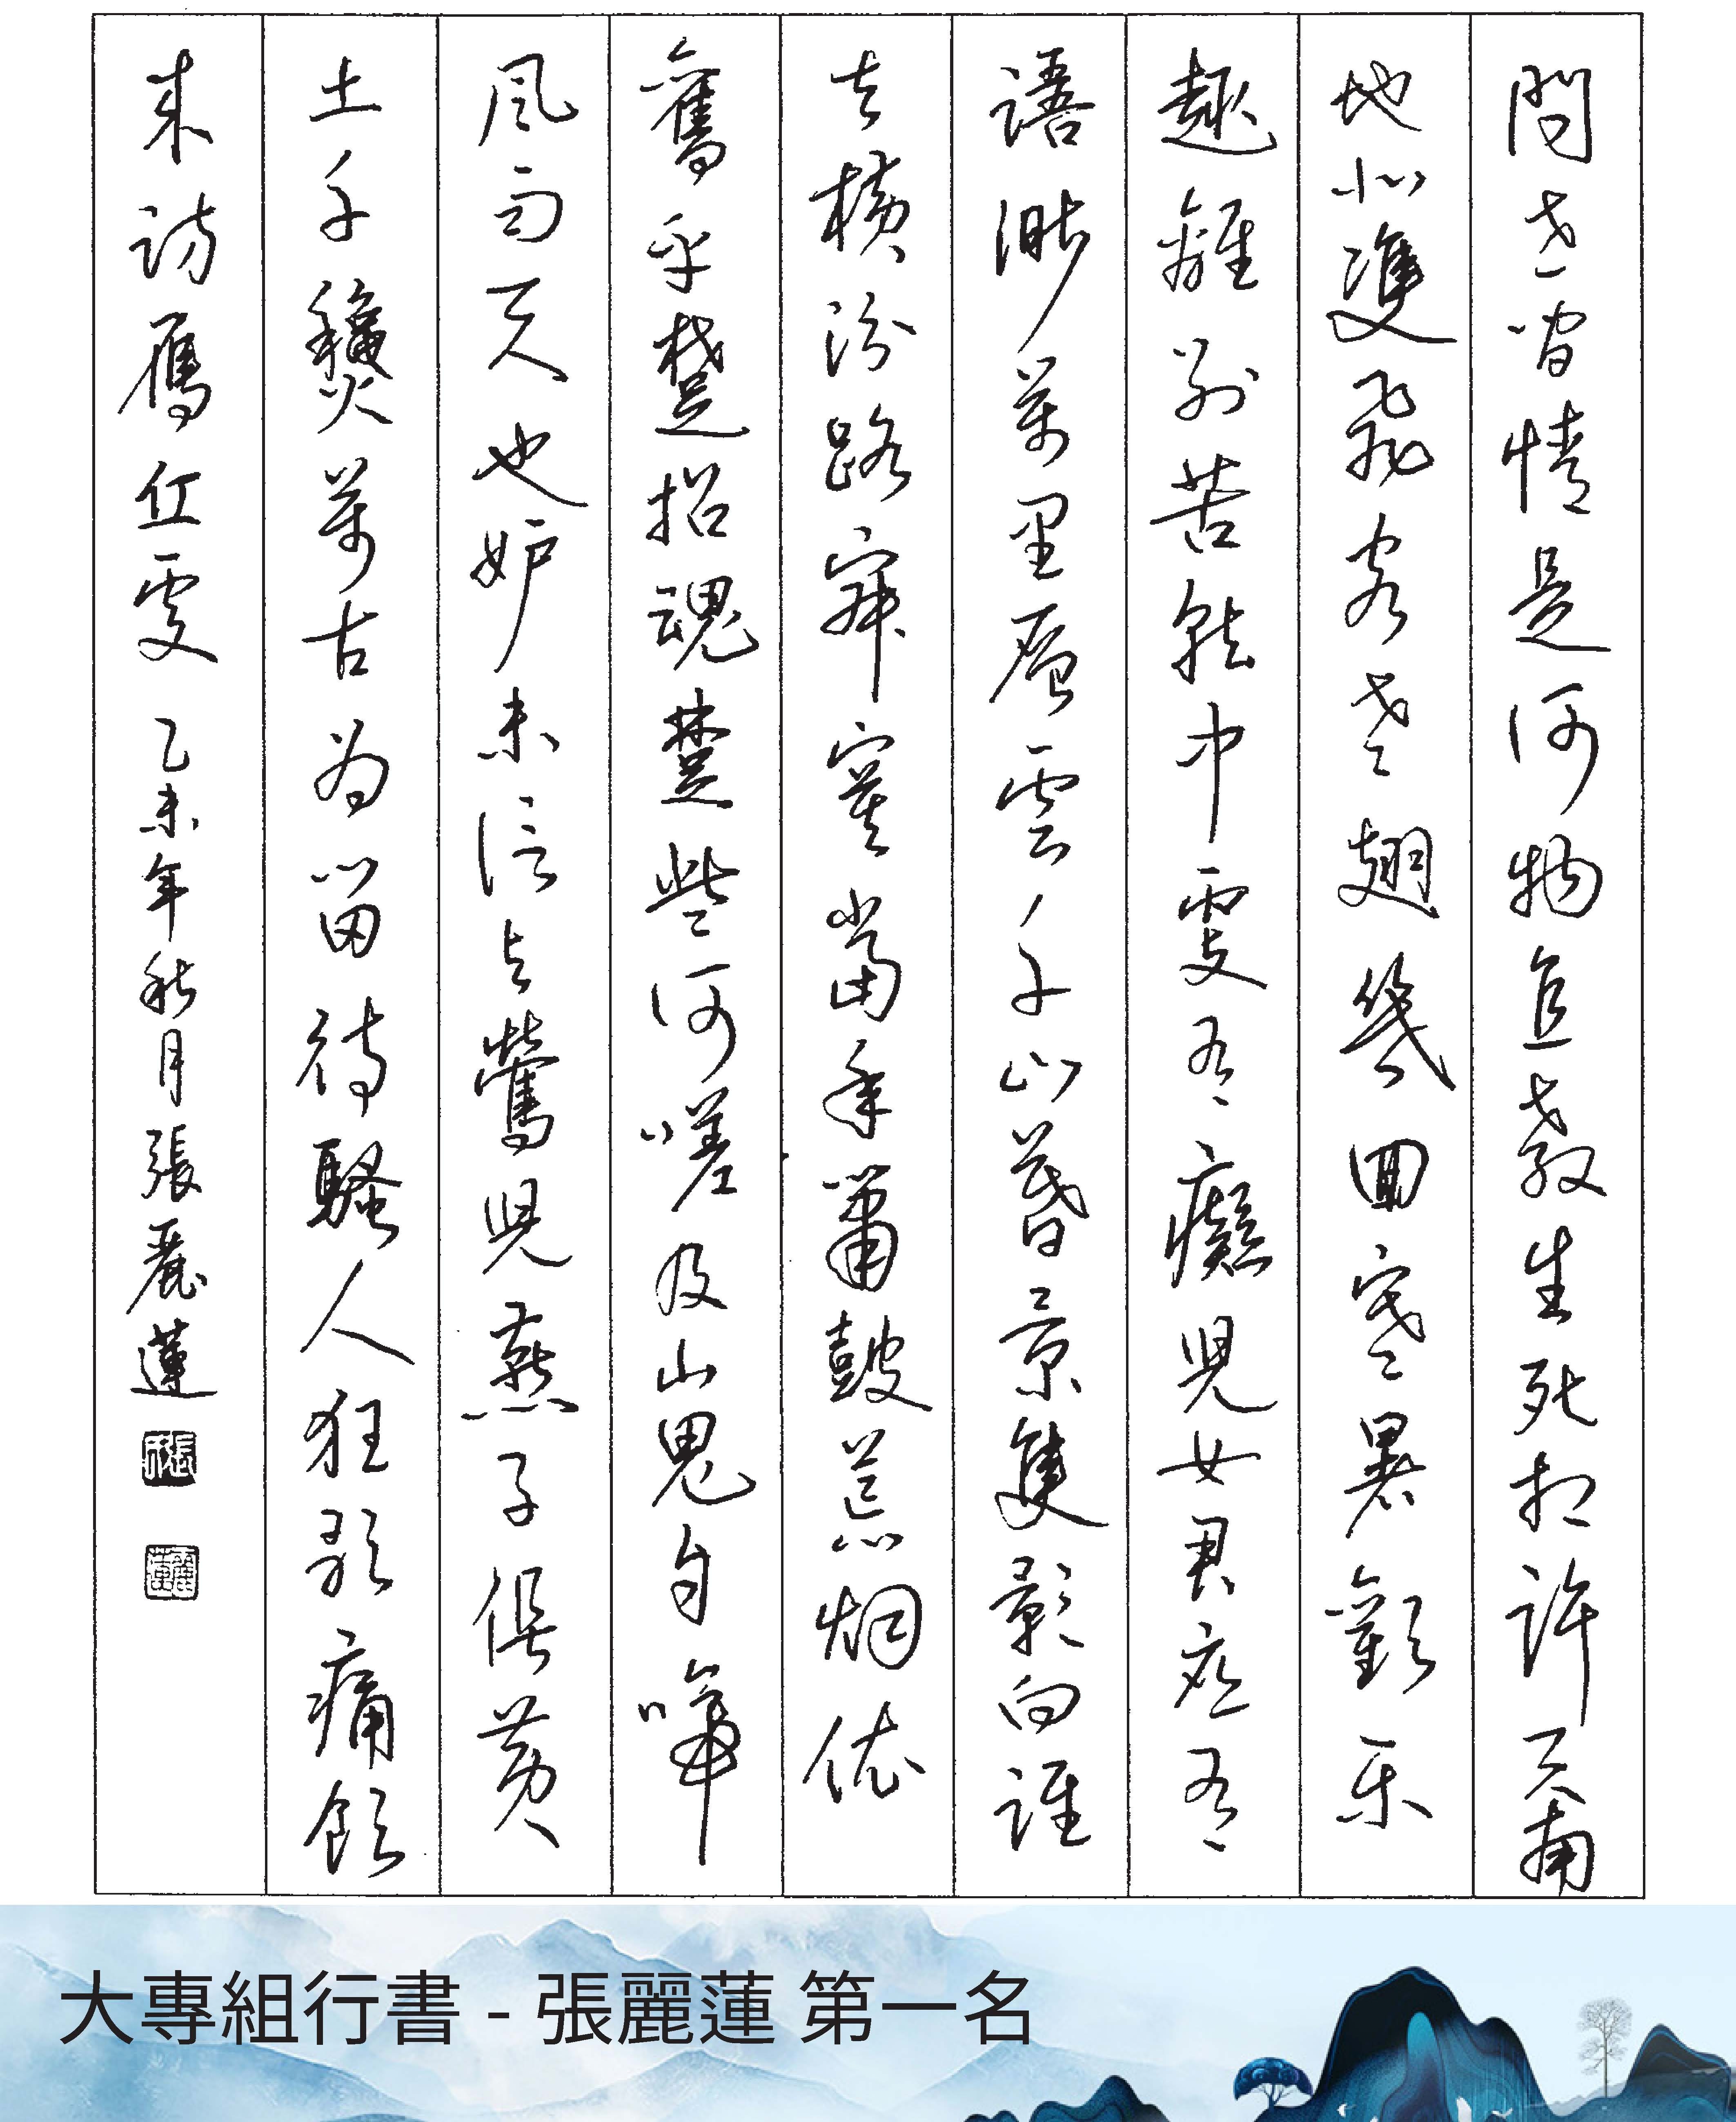 問世間情是何物直教生死相許天南
地北雙飛客老翅幾回寒暑歡樂
趣離別苦就中更有癡兒女君應有
語渺萬里層雲千山暮景隻影向誰
去橫汾路寂寞當年簫鼓荒烟依
舊平楚招魂楚些何嗟及山鬼自啼
風雨天也妒未信與鶯兒燕子俱黃
土千秋萬古為留待騷人狂歌痛飲
來訪雁丘處 乙未年秋月張麗蓮
大專組行書 - 張麗蓮 第一名